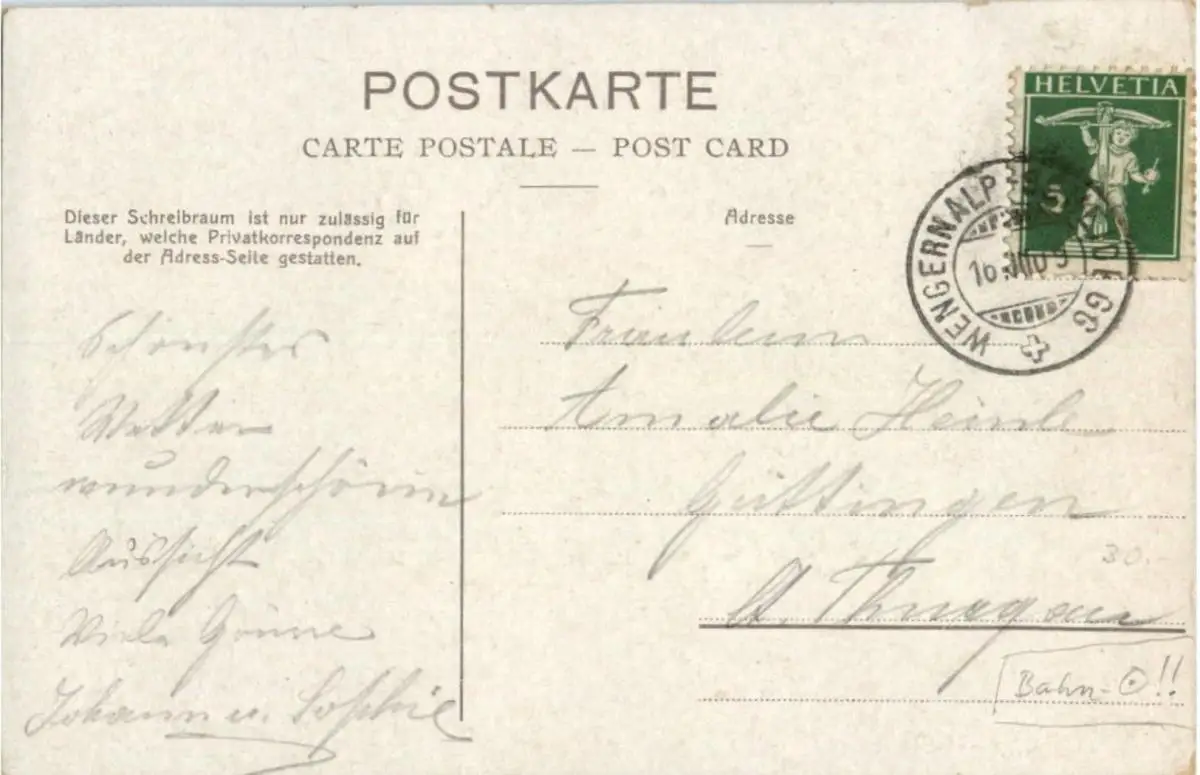 POSTKARTE
CARTE POSTALE — POST CARD
HELVETIA
5
WENGERNALP
16.VIII.09
Dieser Schreibraum ist nur zulässig für
Länder, welche Privatkorrespondenz auf
der Adress-Seite gestatten.
Adresse
Schönstes
Wetter
wunderschöne
Aussicht
Viele Grüsse
Johann u. Sophie
Fräulein
Amalie
Güttingen
Ct. Thurgau
30.-
Bahn-⊙!!